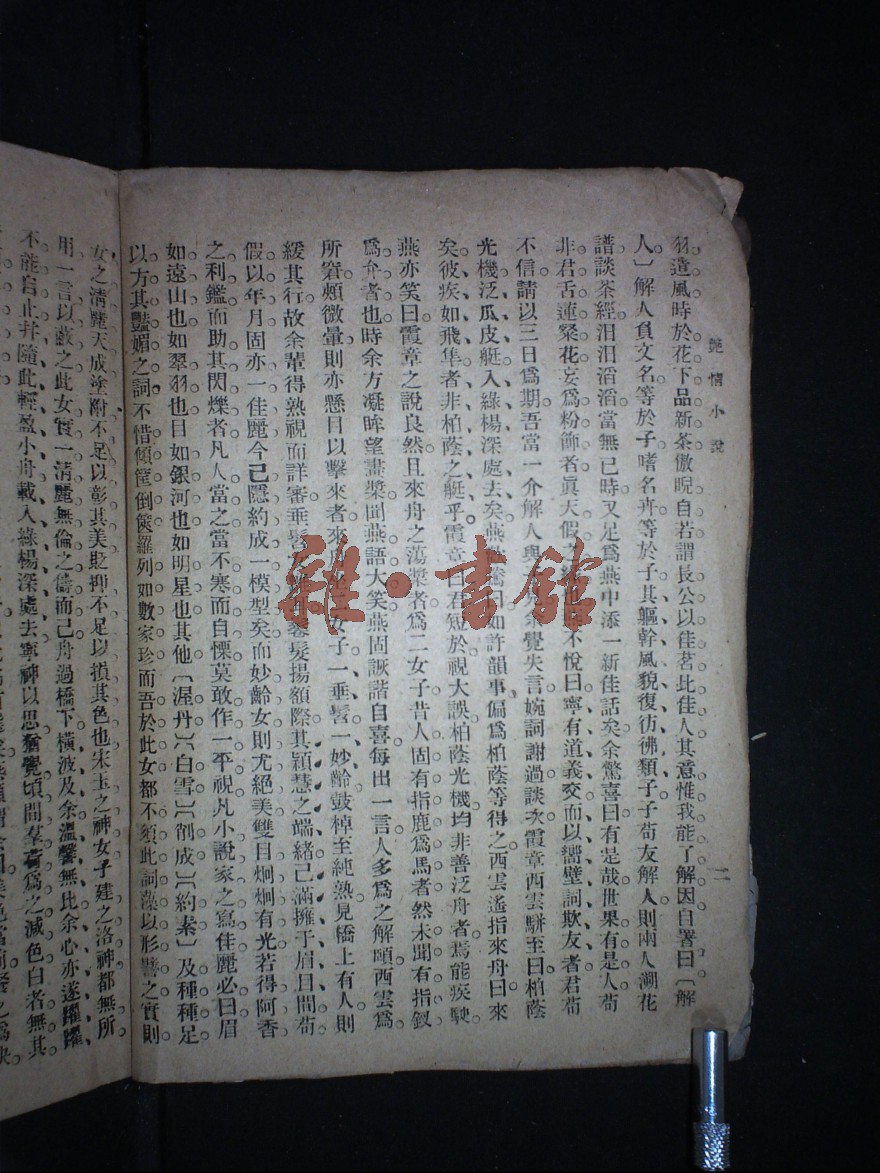 艷情小說
二
羽造風時於花下品新茶傲睨自若謂長公以佳茗此佳人其意惟我能了解因自署曰〔解
人〕解人負文名等於子嗜名卉等於子其軀幹風貌復彷彿類子子苟友解人則兩人溯花
譜談茶經汩汩滔滔當無已時又足爲燕中添一新佳話矣余驚喜曰有是哉世果有是人苟
非君舌蓮粲花妄爲粉飾者眞天假之 不悅曰寧有道義交而以嚮壁詞欺友者君苟
不信請以三日爲期吾當一介解人與 余覺失言婉詞謝過談次霞章西雲駢至曰柏蔭
光機泛瓜皮艇入綠楊深處去矣燕 曰如許韻事偏爲柏蔭等得之西雲遙指來舟曰來
矣彼疾如飛隼者非柏蔭之艇乎霞章曰君短於視大誤柏蔭光機均非善泛舟者焉能疾駛
燕亦笑曰霞章之說良然且來舟之蕩槳者爲二女子昔人固有指鹿爲馬者然未聞有指釵
爲弁者也時余方凝眸望畫槳聞燕語大笑燕固詼諧自喜每出一言人多爲之解頤西雲爲
所窘頰微暈則亦懸目以擊來者來 女子一垂髫一妙齡鼓棹至純熟見橋上有人則
緩其行故余輩得熟視而詳審垂髫 髮揚額際其穎慧之端緒已滿擁于眉目間苟
假以年月固亦一佳麗今已隱約成一模型矣而妙齡女則尤絕美雙目炯炯有光若得阿香
之利鑑而助其閃爍者凡人當之當不寒而自慄莫敢作一平視凡小說家之寫佳麗必曰眉
如遠山也如翠羽也目如銀河也如明星也其他〔渥丹〕〔白雪〕〔削成〕〔約素〕及種種足
以方其豔媚之詞不惜傾筐倒篋羅列如數家珍而吾於此女都不須此詞藻以形譬之實則
女之清麗天成塗附不足以彰其美貶抑不足以損其色也宋玉之神女子建之洛神都無所
用一言以蔽之此女實一清麗無倫之儔而已舟過橋下橫波及余溫馨無比余心亦遂躍躍
不能自止并隨此輕盈小舟載入綠楊深處去寧神以思猶覺頃間羣 爲之減色白者無其
雜·書館